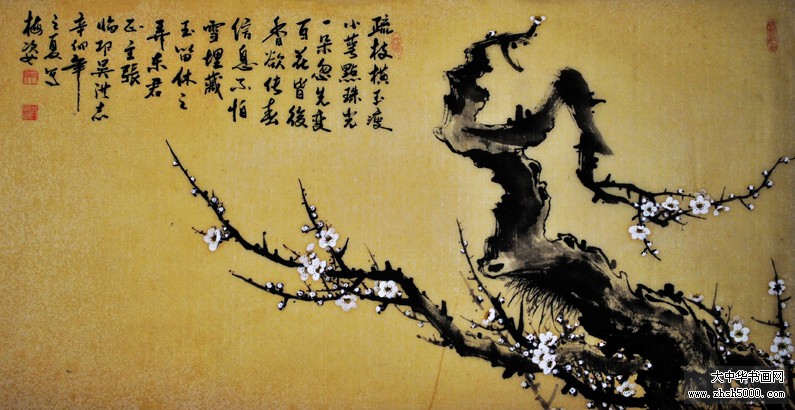 疏枝横玉瘦
小萼點珠光
一朵忽先变
百花皆後
香欲传春
信息不怕
雪埋藏
玉笛休三
弄東君
正主張
臨邛吴洪志
辛卯年
之夏写
梅
大中华书画网
www.zhsh5000.com